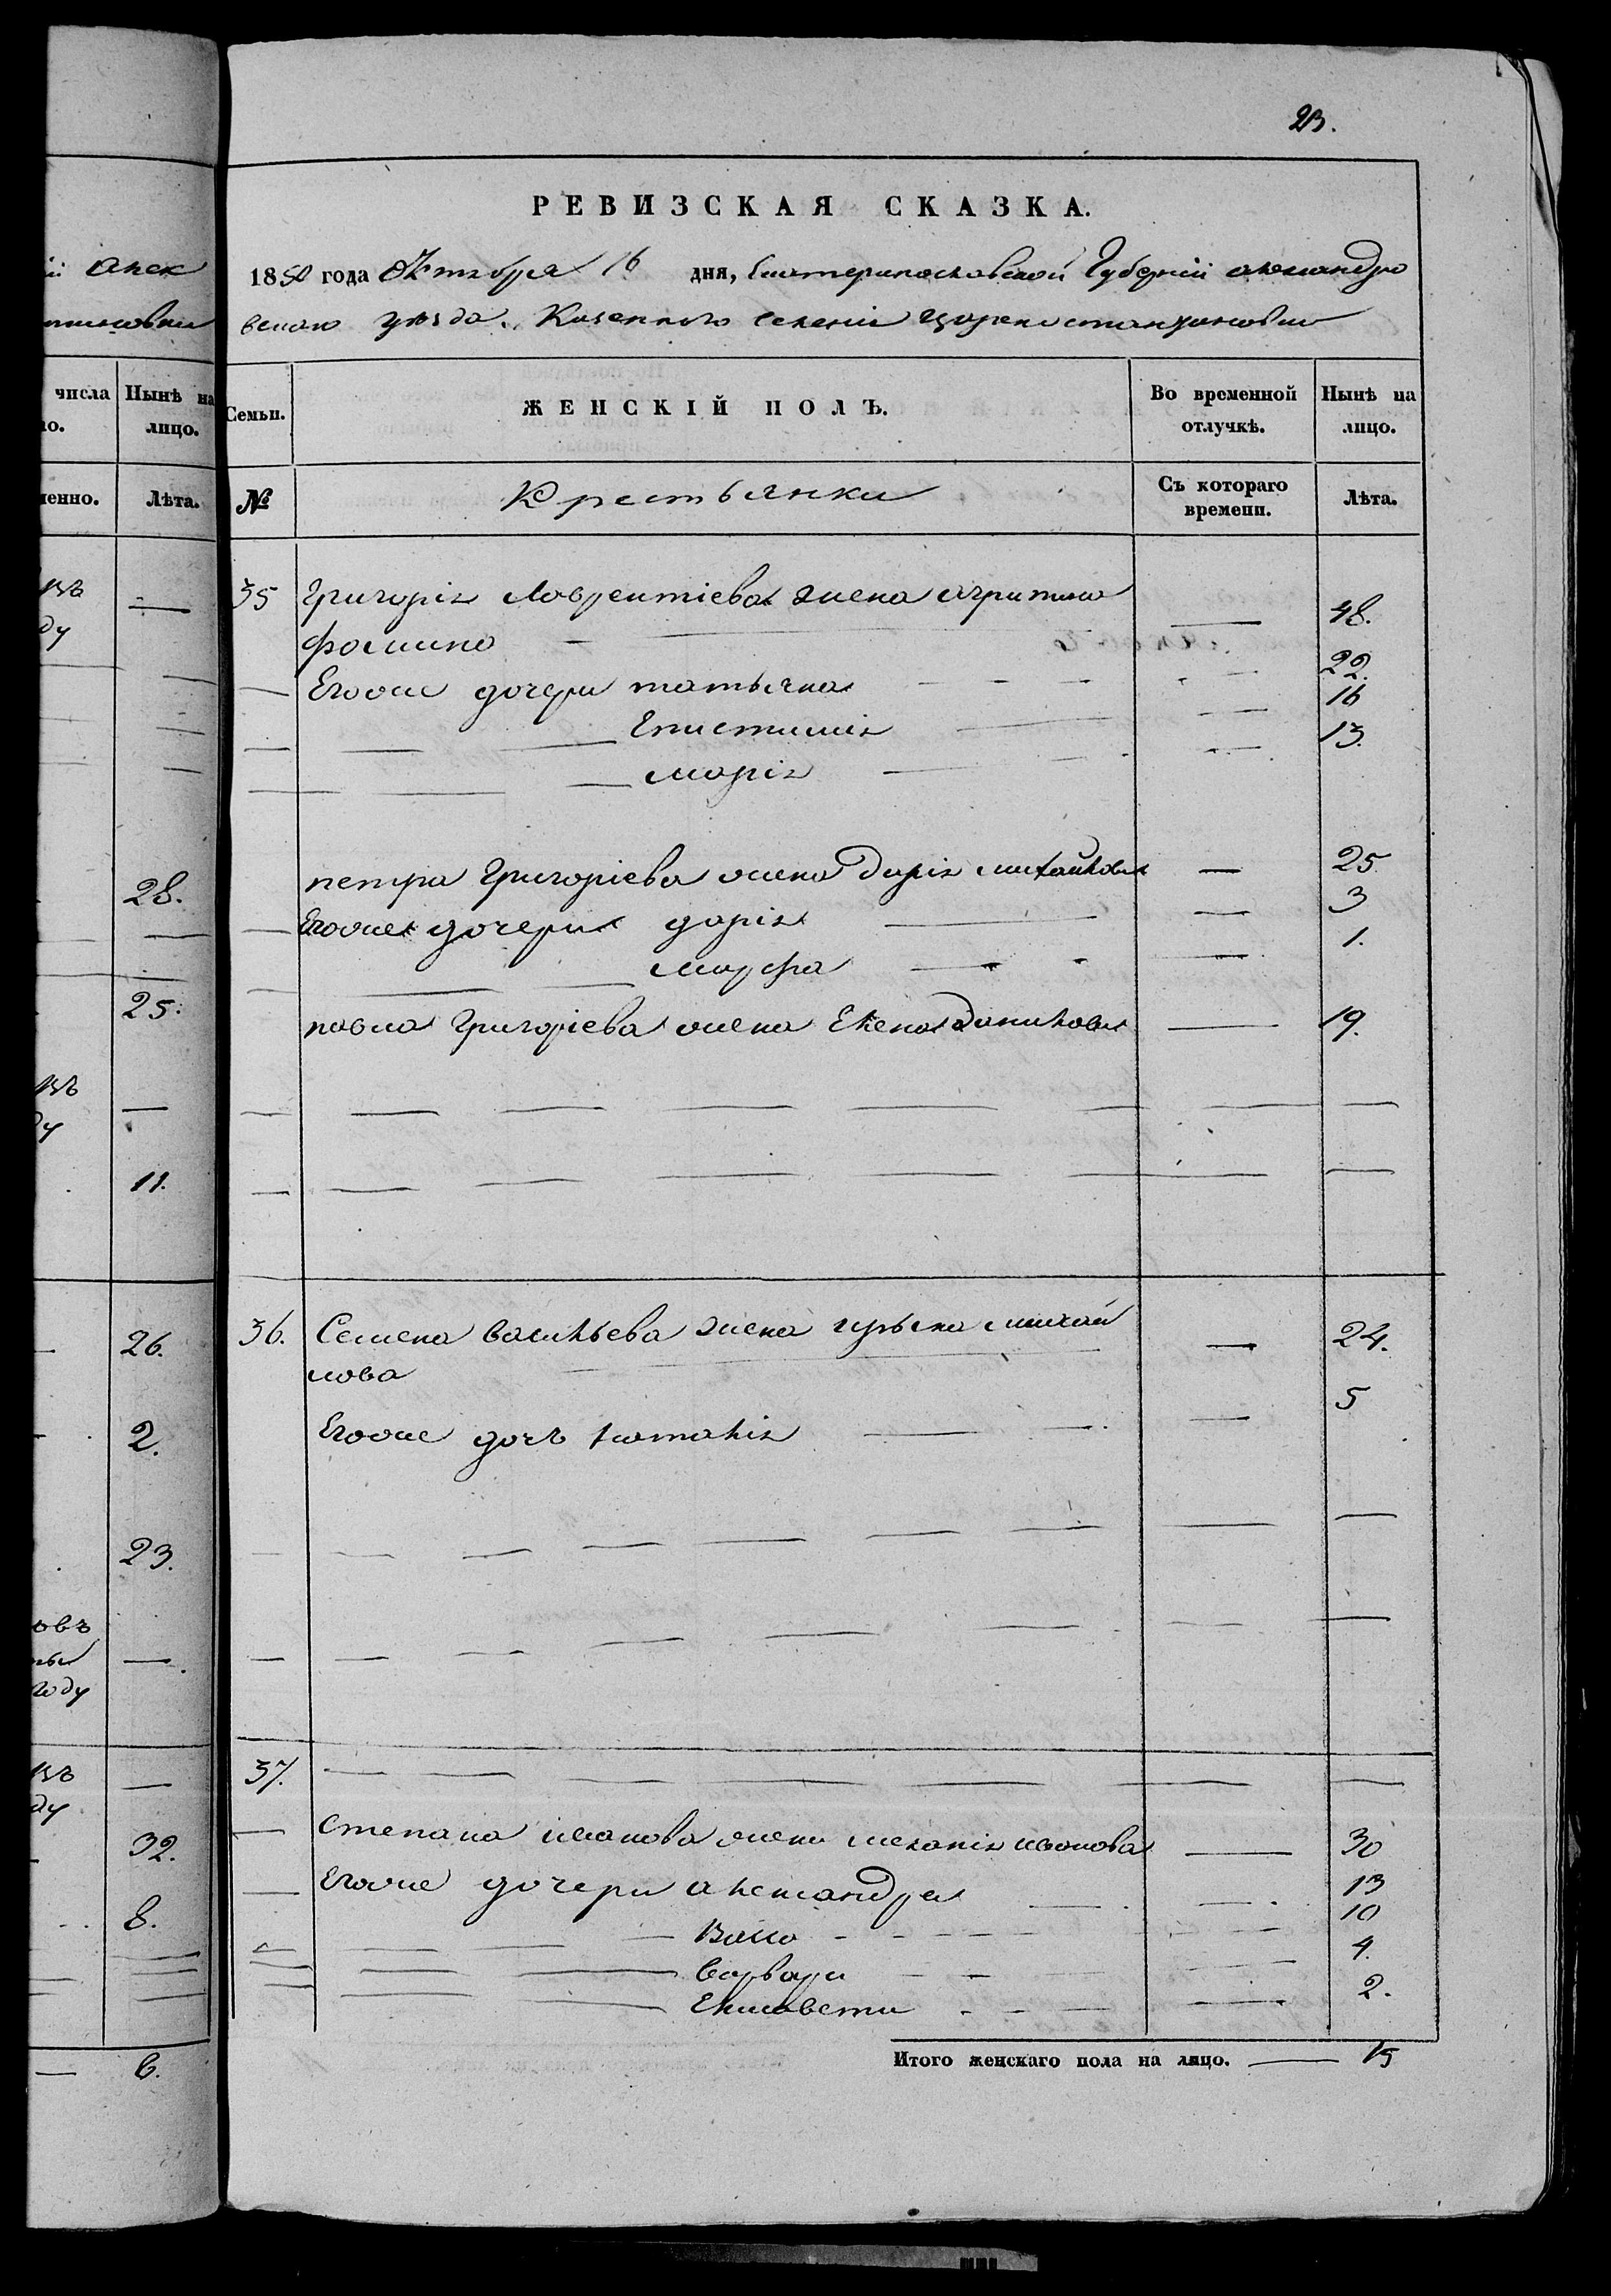 23.
ій Алек
тиновки
числа
Нынѣ на
лицо.
Лѣта.
28.
25.
11.
26.
2.
23.
году
32.
8.
6.
РЕВИЗСКАЯ СКАЗКА.
1850 года Октября 16 дня, Екатеринославской Губерніи александро
вскаго уѣзда. Казенного Селенія Цареконстантиновки
Семьи.
ЖЕНСКІЙ ПОЛЪ.
Во временной отлучкѣ.
Нынѣ на лицо.
№
Крестьянки
Съ котораго времени.
Лѣта.
35 Григорія Лаврентіева жена агрипина
фомина — 48.
Егоже дочери татьяна — 22.
Епистимія — 16
марія — 13.
петра Григоріева жена Дарія михайлова — 25
Егоже дочери дарія — 3
марфа — 1.
павла Григоріева жена Елена Данилова — 19.
36. Семена васильева жена михай
лова — 24.
Егоже дочь наталія — 5
37.
Степана иванова жена меланія иванова — 30
Егоже дочери александра — 13
Васса — 10
варвара — 4.
Елисавета — 2.
Итого женскаго пола на лицо. — 15